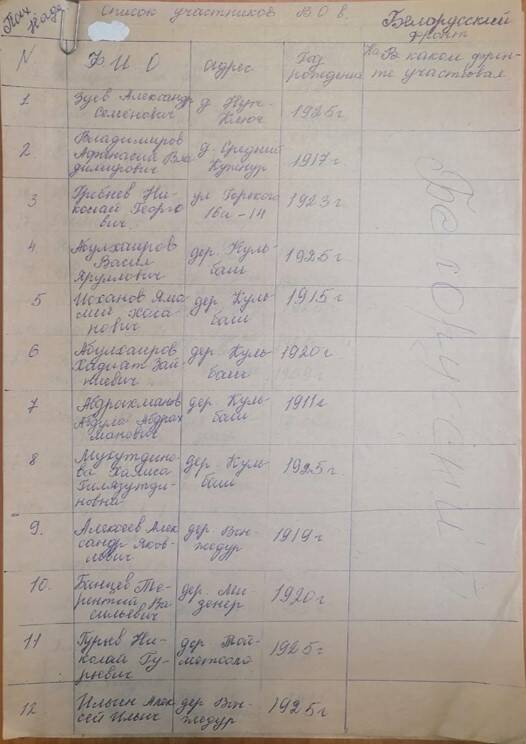 Список участников В О в. Белорусский
фронт
N Ф И О адрес Год
рождения В каком фрон-
те участвовал
1 Зуев Александр
Семенович д. Нуж-
Ключ 1925 г
2 Владимиров
Афанасий Вла
димирович д. Средний
Кужнур 1917 г
3 Гребнев Ни-
колай Георг
вич ул Горького
16а-14 1923 г
4. Абулхаиров
Васил
Яруллович дер. Куль-
баш 1925 г
5 Исханов
нович дер. Куль-
баш 1915 г
6 Абулхаиров
дер. Куль-
баш 1920 г
7 Абдрахманов
Абдула Абдрах
манович дер. Куль-
баш 1911 г
8 Мухутдино-
ва
Гилязутди-
новна дер. Куль-
баш 1925 г.
9. Алексеев Алек
сандр Яков-
левич дер. Вон-
жедур 1919 г
10. Банцев Те-
рентий Ва
сильевич дер. Ми-
зенер 1920 г
11 Гурьев Ни-
колай Гу-
рьевич дер. Той-
метсола 1925 г
12 Ильин Алек
сей Ильич дер Вон-
жедур 1925 г
Белорусский